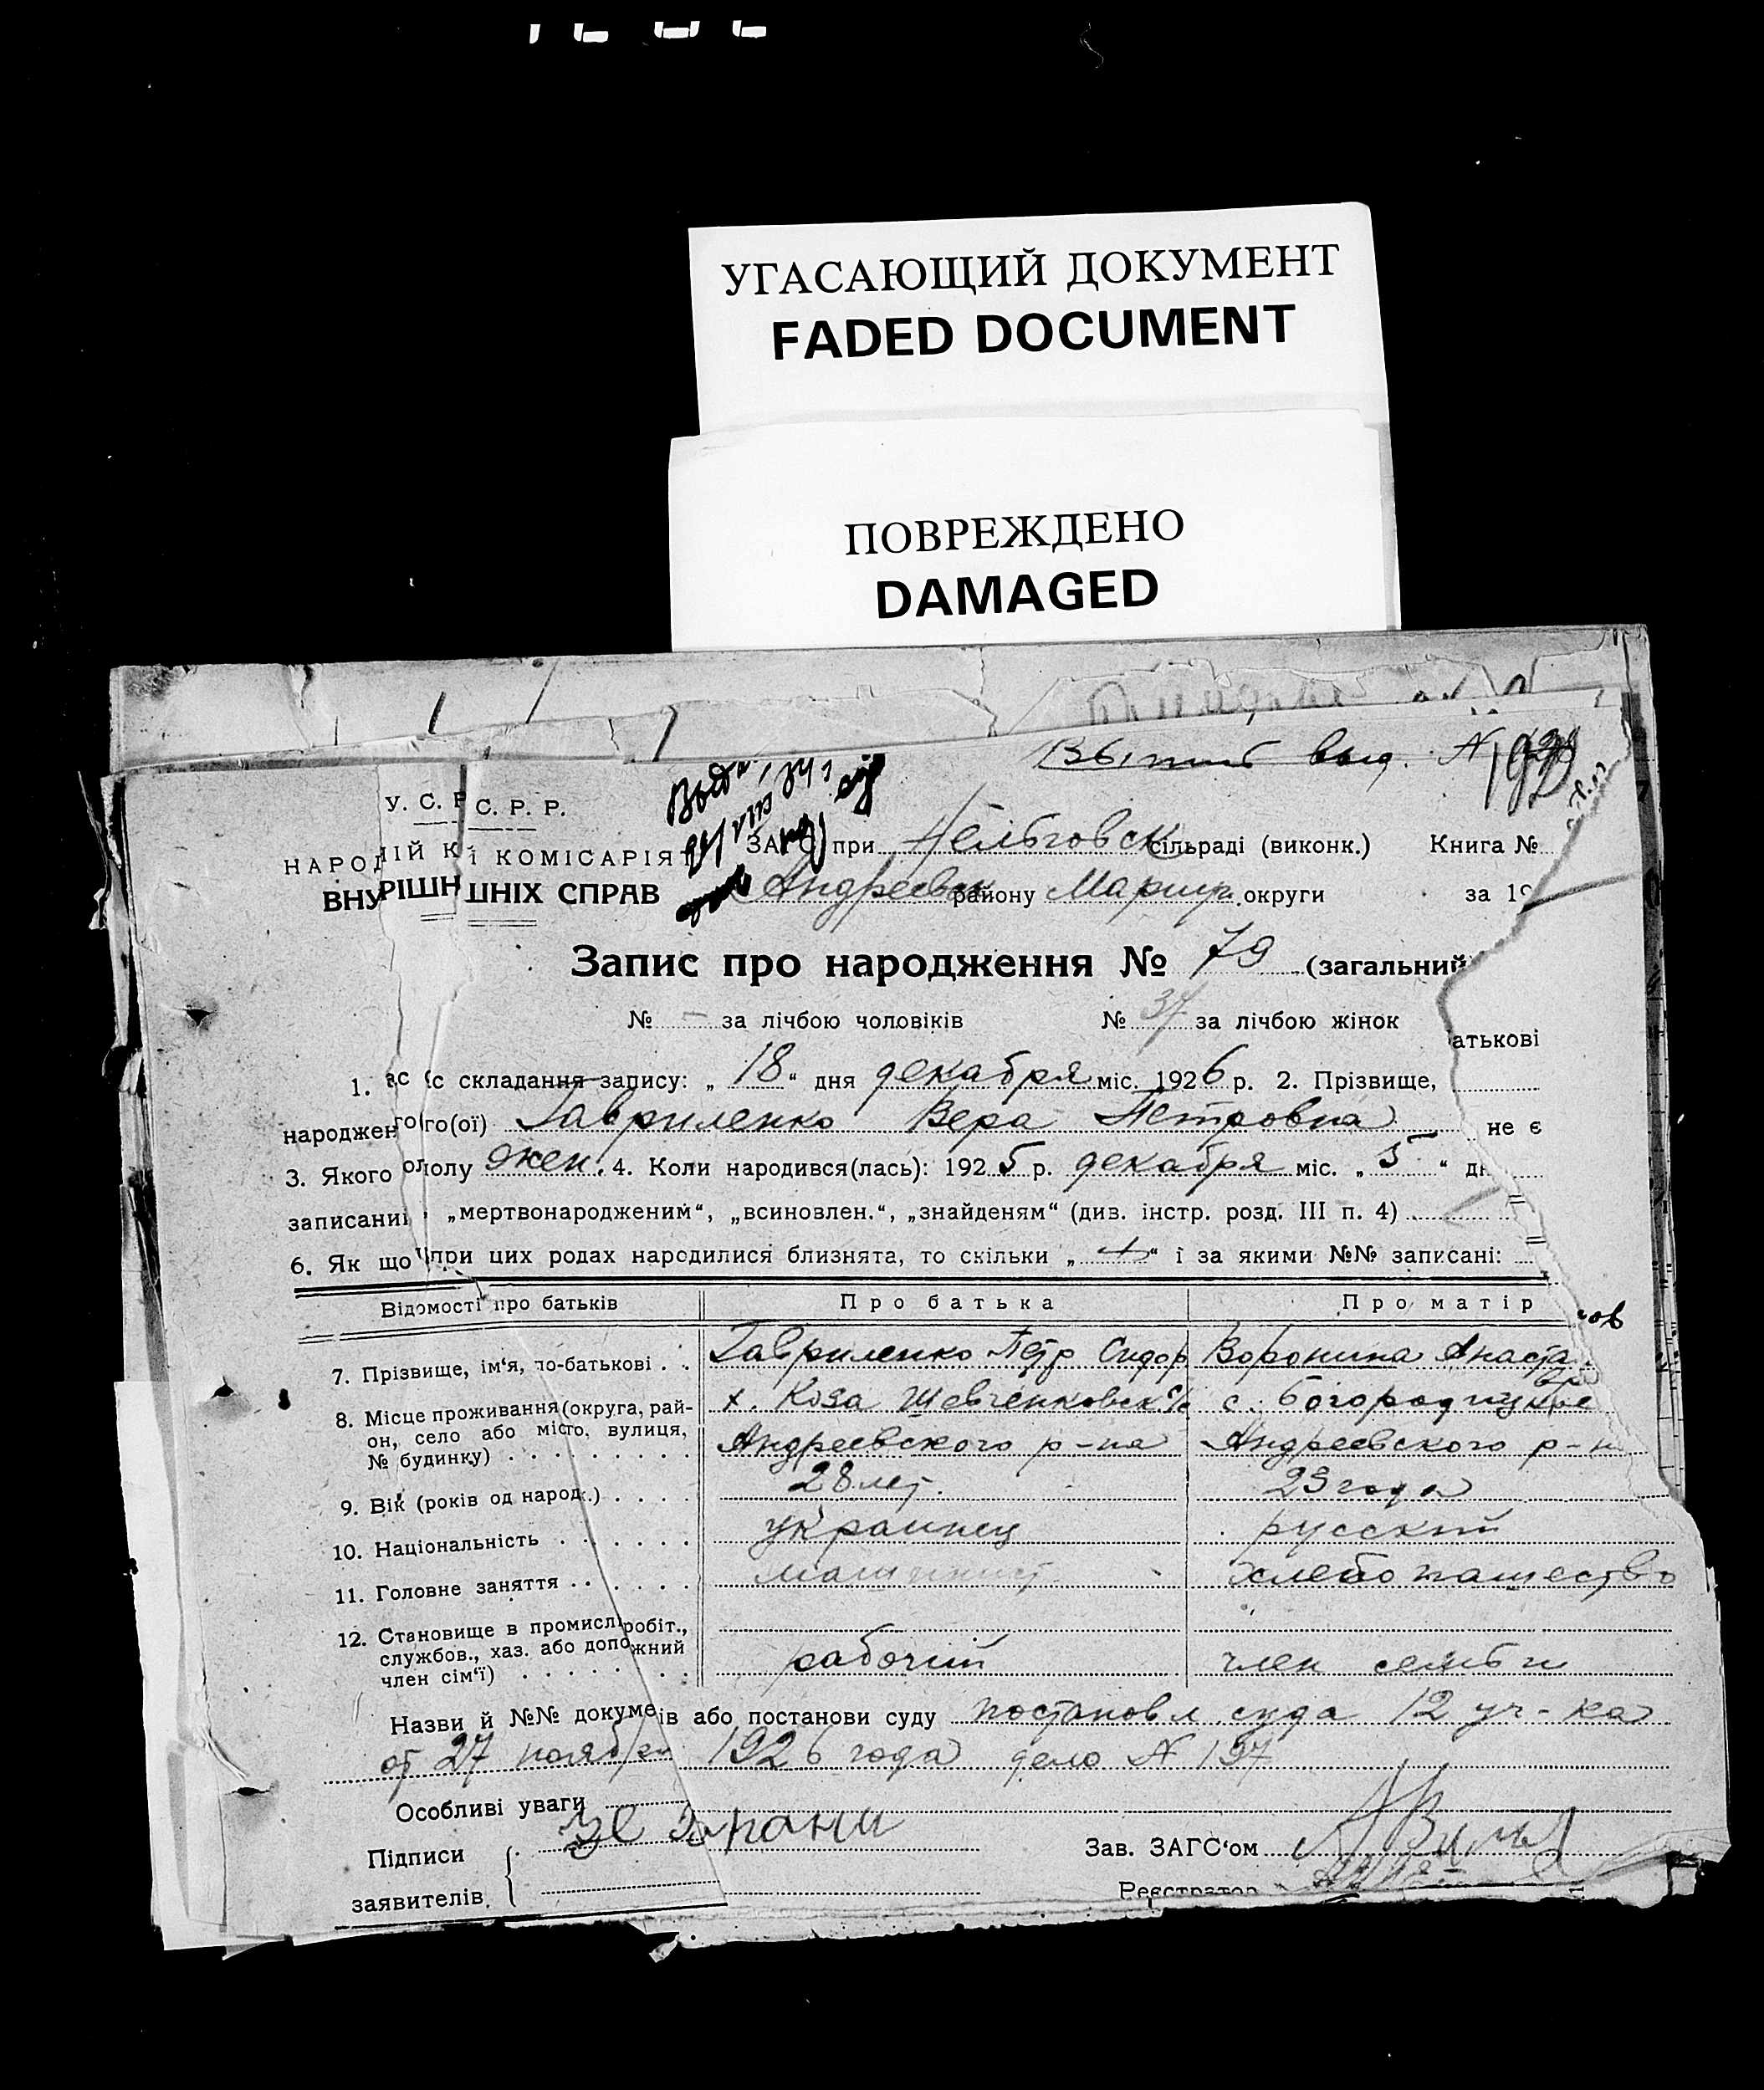 УГАСАЮЩИЙ ДОКУМЕНТ
FADED DOCUMENT
ПОВРЕЖДЕНО
DAMAGED
выд. N
У. С. Р С. Р. Р.
НАРОД ІЙ К І КОМІСАРІЯТ
ВНУ РІШН ШНІХ СПРАВ
ЗАГС при сільраді (виконк.) Книга №
Андреевск району Мариуп. округи за 19
Запис про народження № 79 (загальний
№ — за лічбою чоловіків № 37 за лічбою жінок
атькові
1. ас с складання запису: „ 18 “ дня декабря міс. 1926 р. 2. Прізвище,
народжен го го(ої) Гавриленко Вера Петровна не є
3. Якого ол полу жен. 4. Коли народився(лась): 1925 р. декабря міс. „ 5 “ дн
записаний „мертвонародженим“, „всиновлен.“, „знайденям“ (див. інстр. розд. III п. 4)
6. Як що при цих родах народилися близнята, то скільки „ “ і за якими №№ записані:
Відомості про батьків Про батька Про матір
7. Прізвище, ім‘я, по-батькові Гавриленко Петр Сидор Воронина Анаста
8. Місце проживання (округа, рай- х. Коза Шевченковск с/с с. Богородицкое
он, село або місто, вулиця, Андреевского р-на Андреевского р-н
№ будинку)
9. Вік (років од народ.) 28 лет. 23 года
10. Національність украинец русский
11. Головне заняття машинист хлебопашество
12. Становище в промислі робіт.,
службов., хаз. або допо жний рабочий член семьи
член сім‘ї)
Назви й №№ докуме ів або постанови суду постановл суда 12 уч-ка
от 27 ноября 1926 года дело N 197
Особливі уваги
Підписи
Зав. ЗАГС‘ом
заявителів.
Реєстратор